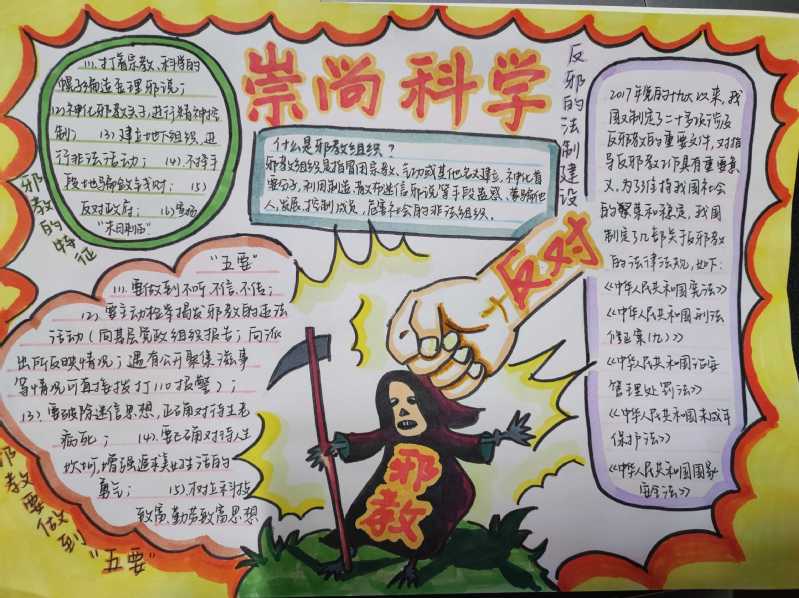 崇尚科学
邪教的特征
(1).打着宗教、科学的
幌子编造歪理邪说;
(2)神化邪教教主,进行精神控
制; (3).建立地下组织,进
行非法活动; (4).不择手
段地骗敛钱财; (5)
反对政府; (6)宣扬
"末日制西"
什么是邪教组织?
邪教组织是指冒用宗教、气功或其他名义建立,神化首
要分子,利用制造、散布迷信邪说等手段蛊惑、蒙骗他
人,发展、控制成员,危害社会的非法组织。
反邪的法制建设
2017年党的十九大以来,我
国又制定了二十多项涉及
反邪教的重要文件,对指
导反邪教工作具有重要意
义,为了维持我国社会
的繁荣和稳定,我国
制定了几部关于反邪教
的法律法规,如下:
《中华人民共和国宪法》
《中华人民共和国刑法
修正案(九)》
《中华人民共和国治安
管理处罚法》
《中华人民共和国未成年
保护法》
《中华人民共和国国家
安全法》
邪教要做到
"五要"
"五要"
(1).要做到不听、不信、不传;
(2).要主动检举揭发邪教的违法
活动(向基层党政组织报告;向派
出所反映情况;遇有公开聚集滋事
等情况可直接拨打110报警);
(3).要破除迷信思想,正确对待生老
病死; (4).要正确对待人生
坎坷,增强追求美好生活的
勇气; (5).树立科技
致富、勤劳致富思想
反对
邪教